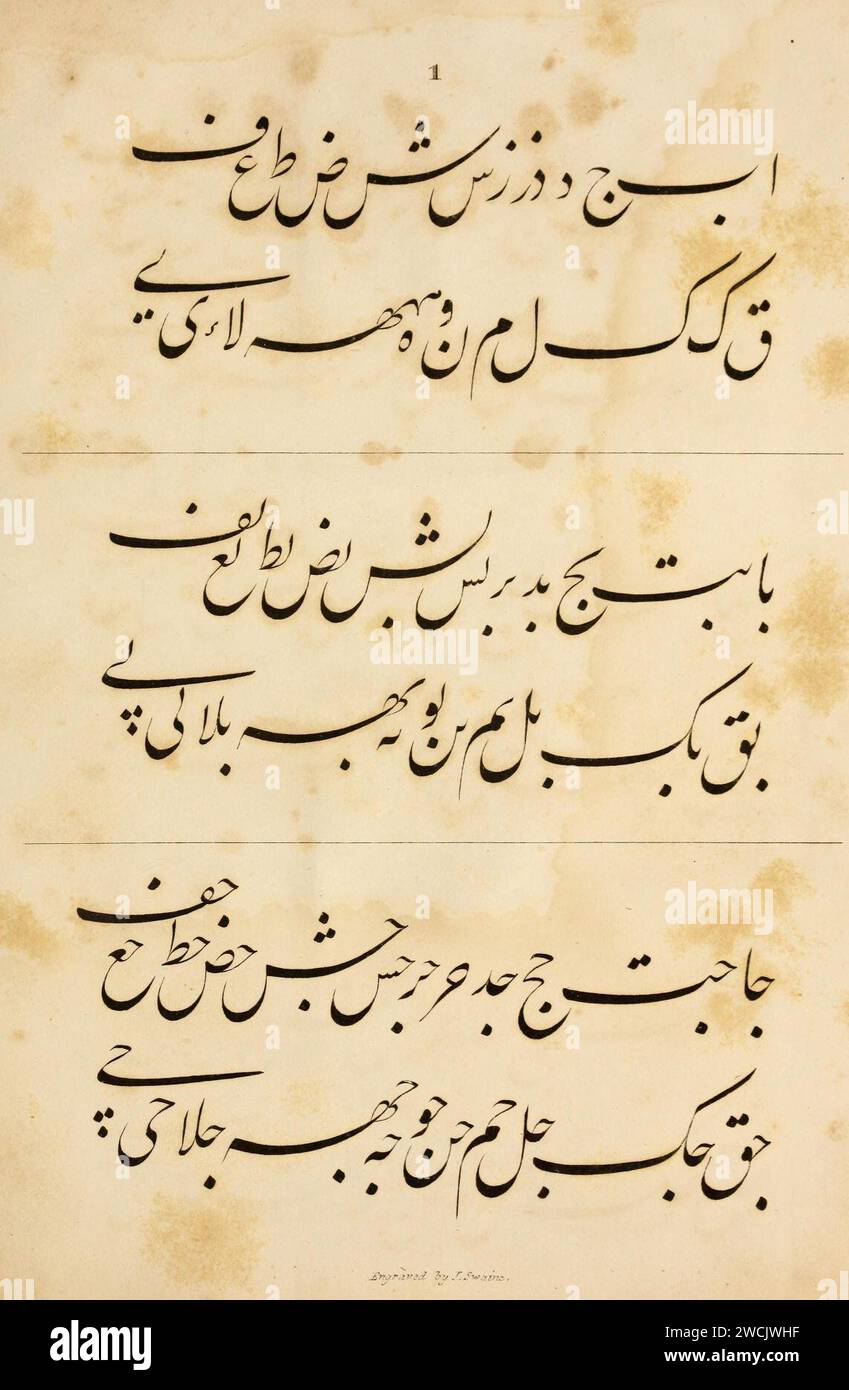 1
ا ب ج د د ذ ر ز س ش ض ط ع ف
ق ک ک ل م ن و ه ہہ ھہ لا ء ی ے
با بت بج بد بر بس بش بض بط بع بف
بق بک بل بم بن بو به بھہ بلا بی پے
جا جبت جج جد جر جس جش جض جط جع جف
جق جک جل جم جن جو جه جھہ جلا جی جے
Engraved by J. Swaine.
alamy
Image ID: 2WCJWHF
www.alamy.com